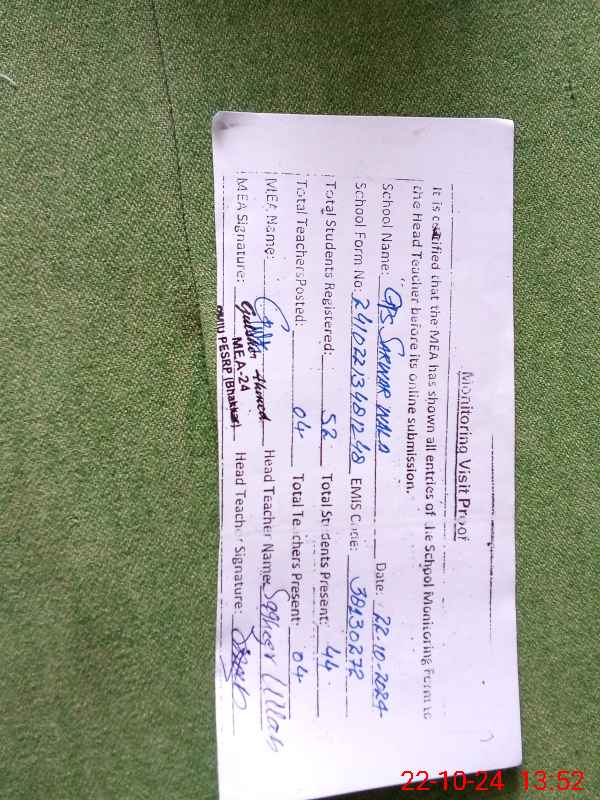 Monitoring Visit Proof
It is certified that the MEA has shown all entries of the School Monitoring Form to
the Head Teacher before its online submission.
School Name: GPS SARWAR WALA Date: 22-10-2024
School Form No: 24102213481248 EMIS Code: 38130272
Total Students Registered: 52 Total Students Present: 44
Total Teachers Posted: 04 Total Teachers Present: 04
MEA Name: Gulsher Ahmed Head Teacher Name: Sagheer Ullah
MEA Signature: Head Teacher Signature:
MEA-24
PMIU PESRP (Bhakkar)
22-10-24 13:52